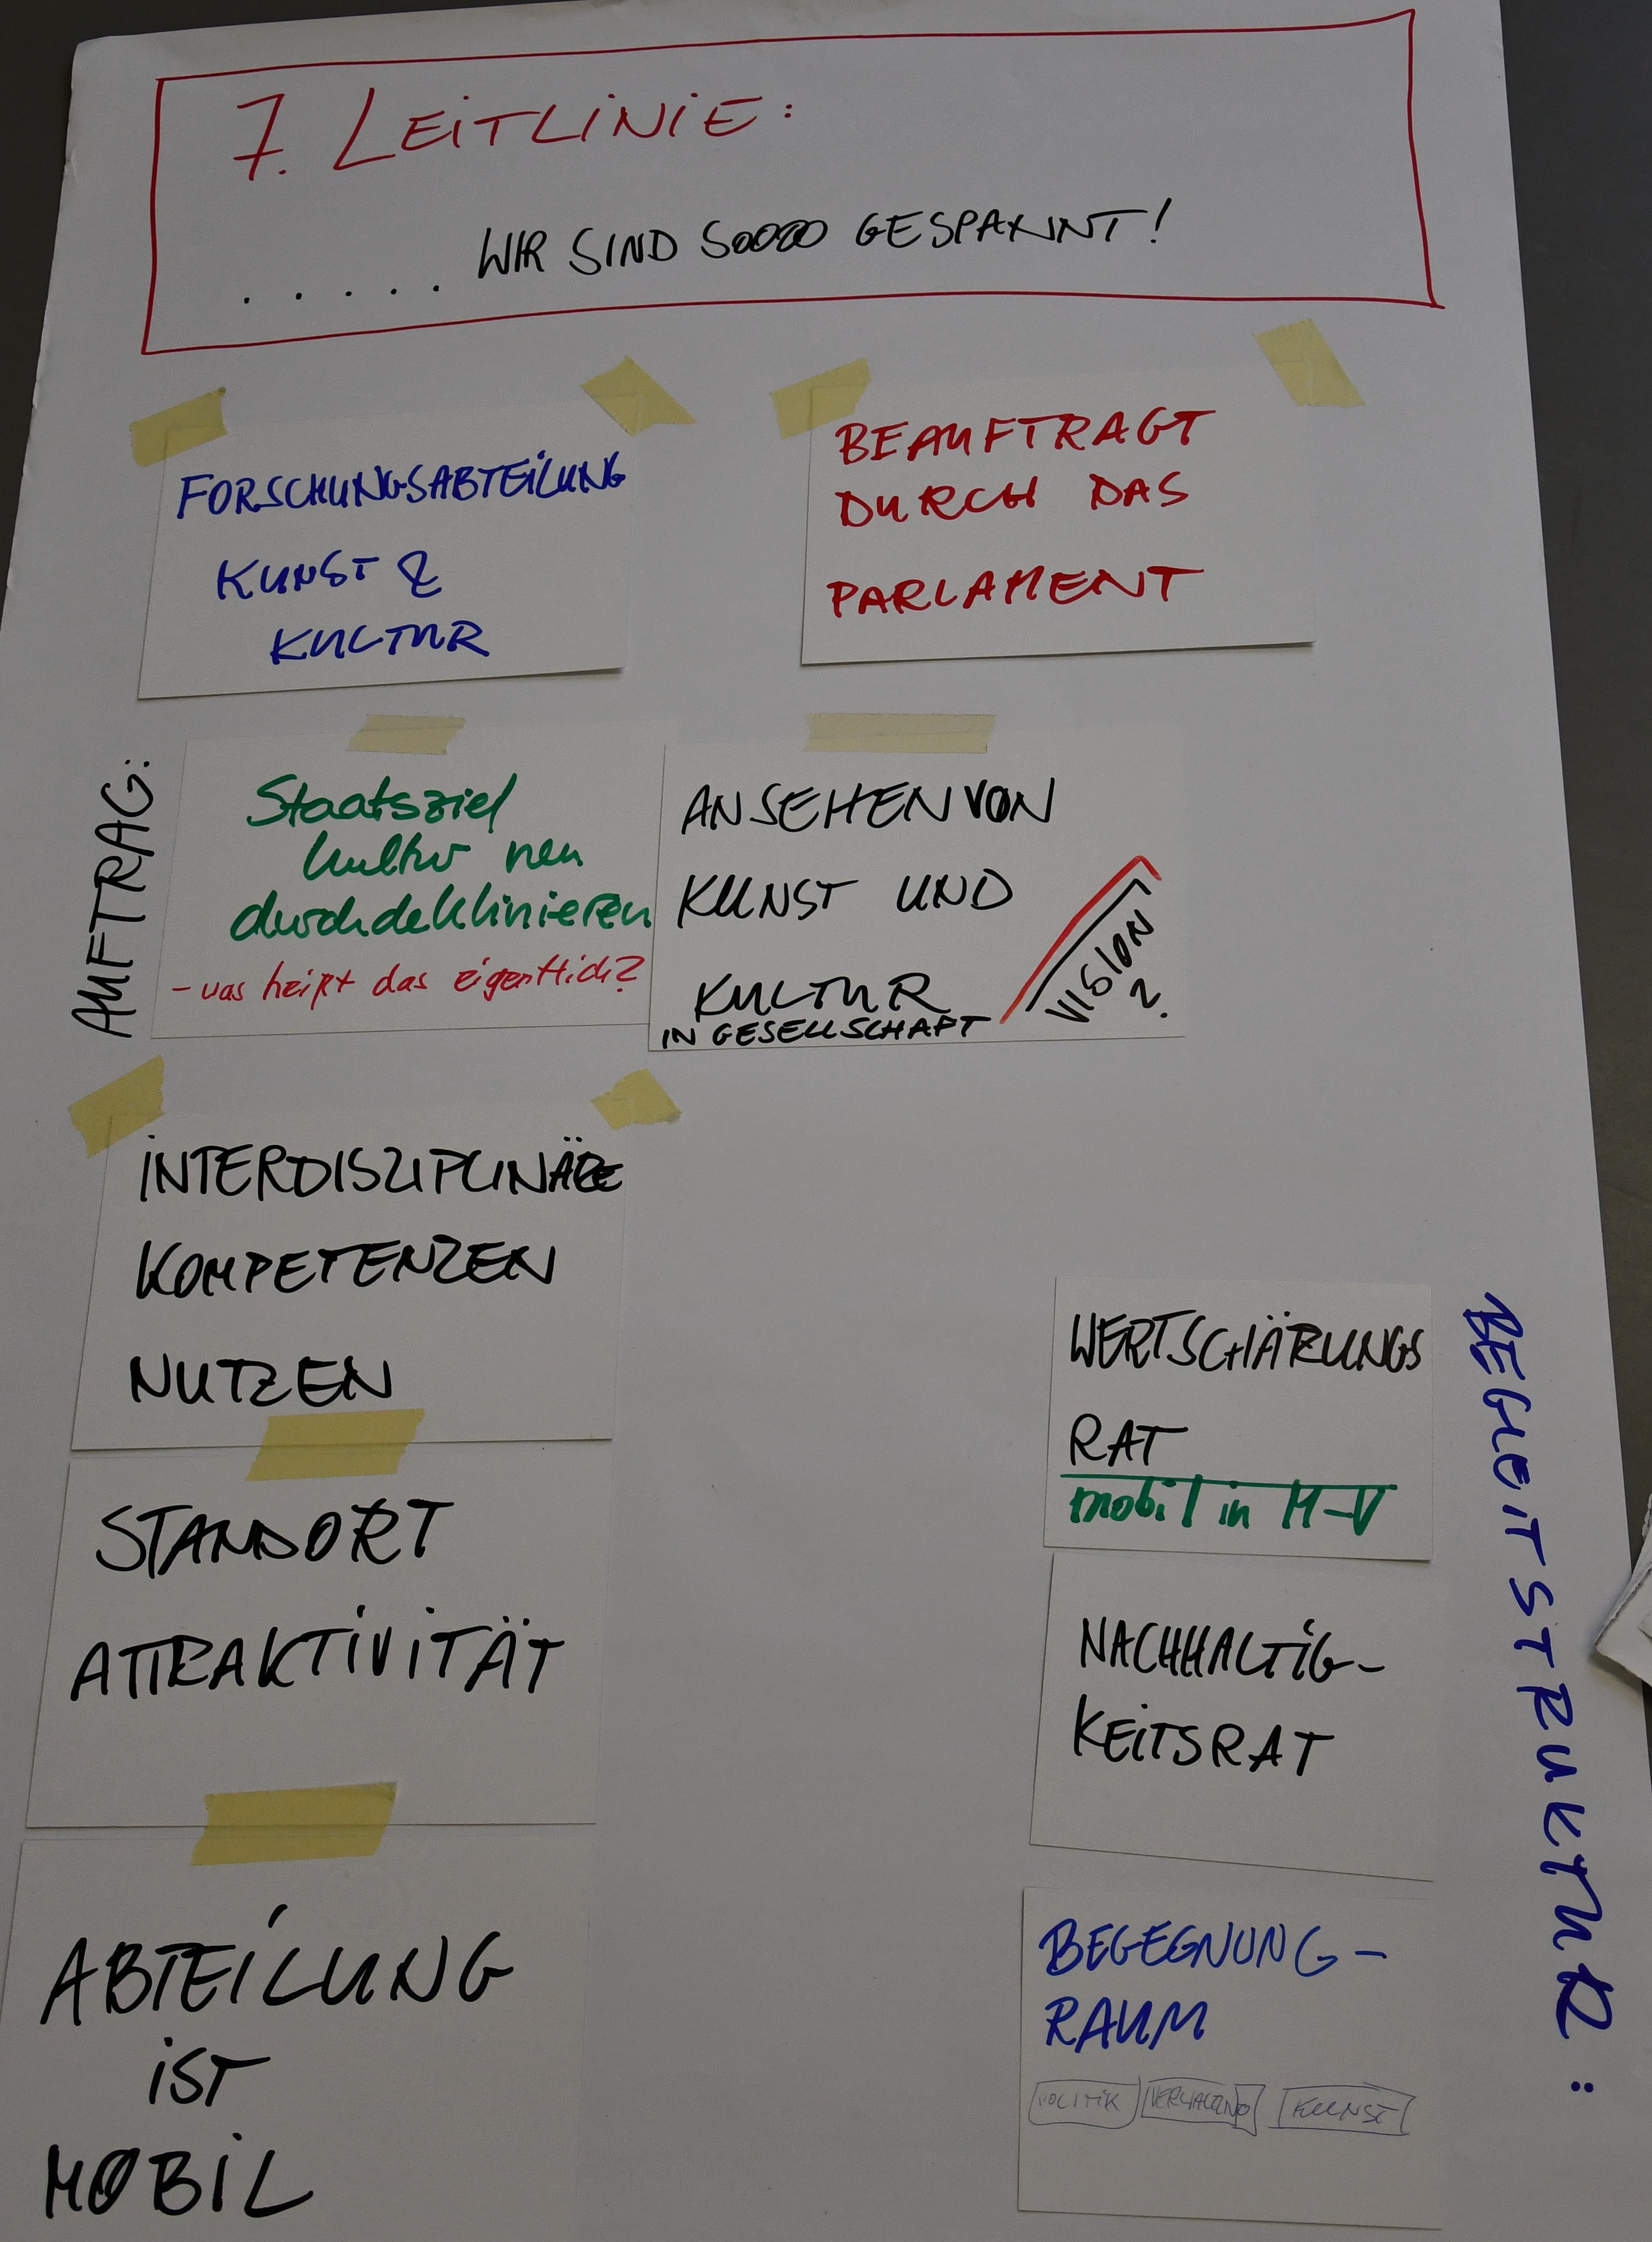 7. LEITLINIE:
..... WIR SIND SOOOO GESPANNT!
FORSCHUNGSABTEILUNG
KUNST &
KULTUR
BEAUFTRAGT
DURCH DAS
PARLAMENT
AUFTRAG:
Staatsziel
Kultur neu
durchdeklinieren
- was heißt das eigentlich?
ANSEHEN VON
KUNST UND
KULTUR
IN GESELLSCHAFT
VISION
2.
INTERDISZIPLINÄRE
KOMPETENZEN
NUTZEN
STANDORT
ATTRAKTIVITÄT
ABTEILUNG
IST
MOBIL
BEGLEITSTRUKTUR:
RAT
mobil in M-V
NACHHALTIG-
KEITSRAT
BEGEGNUNG-
RAUM
POLITIK
KUNST